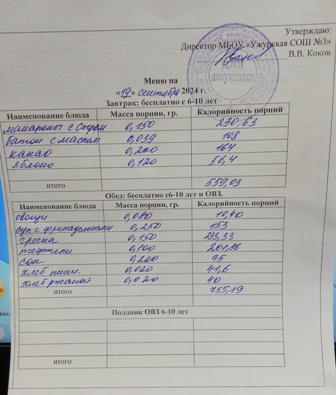 Утверждаю:
Директор МБОУ «Ужурская СОШ №3»
В.В. Коков
документов
Меню на
«19» сентября 2024 г.
Завтрак: бесплатно с 6-10 лет
Наименование блюда Масса порции, гр. Калорийность порций
макароны с сыром 0,150 230,63
батон с маслом 0,039 108
какао 0,200 164
яблоко 0,120 56,4
итого 559,03
Обед: бесплатно с6-10 лет и ОВЗ.
Наименование блюда Масса порции, гр. Калорийность порций
овощи 0,080
суп с фрикадельками 0,250 153
гречка 0,150 233,33
тефтели 0,100 201,86
сок 0,200 75
хлеб пшен. 0,020 41,6
хлеб ржаной 0,020 40
итого 755,19
Полдник ОВЗ 6-10 лет
итого